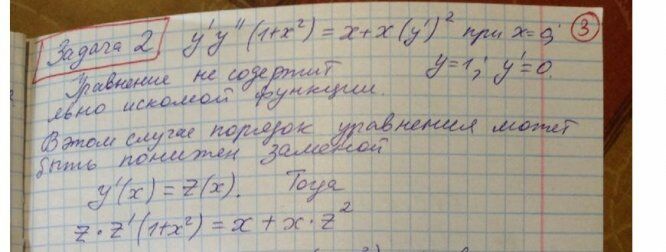 Задача 2 y'y''(1+x²) = x+x(y')² при x=0; ③
Уравнение не содержит y=1; y'=0.
явно искомой функции.
В этом случае порядок уравнения может
быть понижен заменой
y'(x) = z(x). Тогда
z·z'(1+x²) = x + x·z²